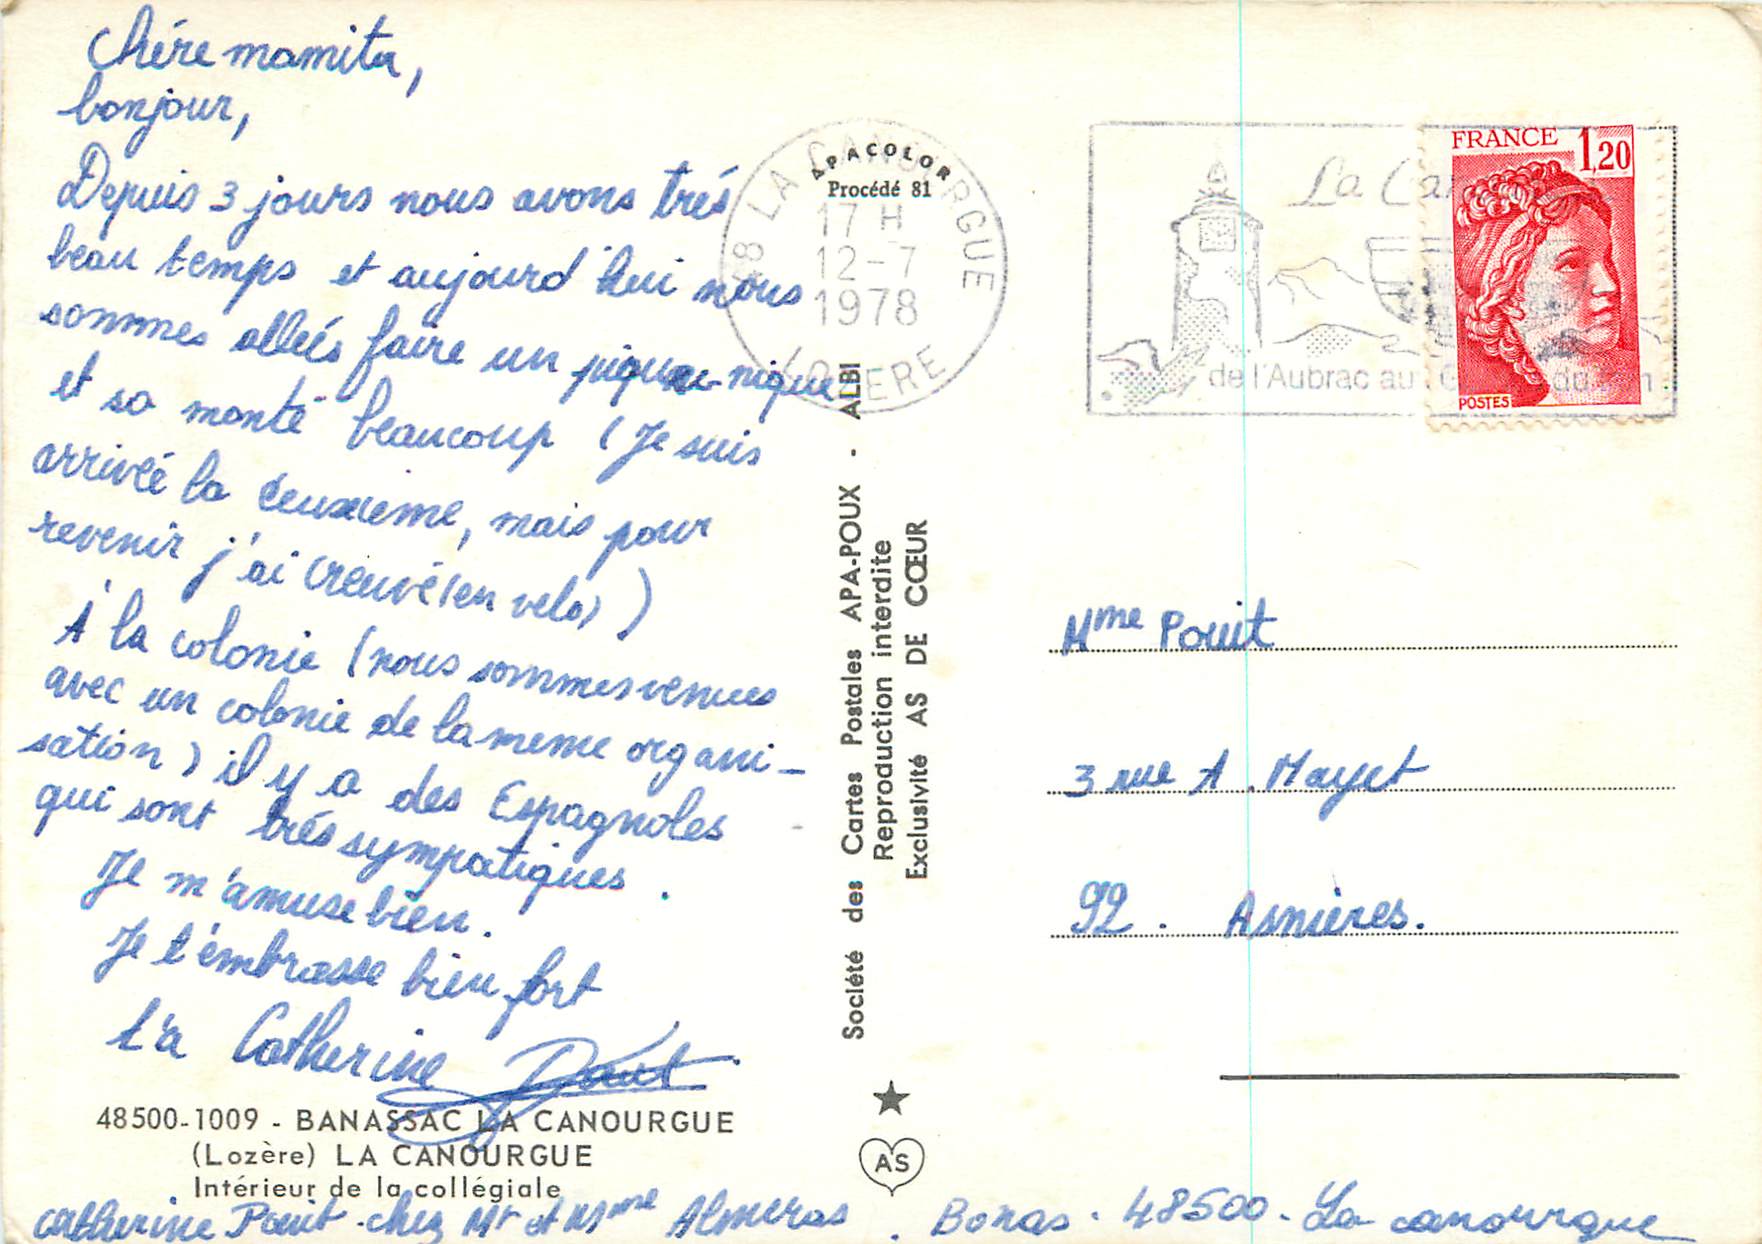 Chére mamita,
bonjour,
Depuis 3 jours nous avons trés
beau temps et aujourd'hui nous
sommes allées faire un pique-nique
et sa monté beaucoup (Je suis
arrivée la deuxieme, mais pour
revenir j'ai creuvé (en velo) )
A la colonie (nous sommes venues
avec un colonie de la meme organi-
sation) il y a des Espagnoles
qui sont trés sympatiques.
Je m'amuse bien.
Je t'émbrasse bien fort
ta Catherine
48500-1009 - BANASSAC LA CANOURGUE
(Lozère) LA CANOURGUE
Intérieur de la collégiale
catherine Pouit chez Mr et Mme Almeras. Bonas. 48500. La canourgue
APACOLOR
Procédé 81
48 LA CANOURGUE
17 H
12-7
1978
LOZERE
Société des Cartes Postales APA-POUX - ALBI
Reproduction interdite
Exclusivité AS DE CŒUR
AS
La Can
de l'Aubrac au G du n
FRANCE 1,20
POSTES
Mme Pouit
3 rue A. Mayet
92. Asnières.